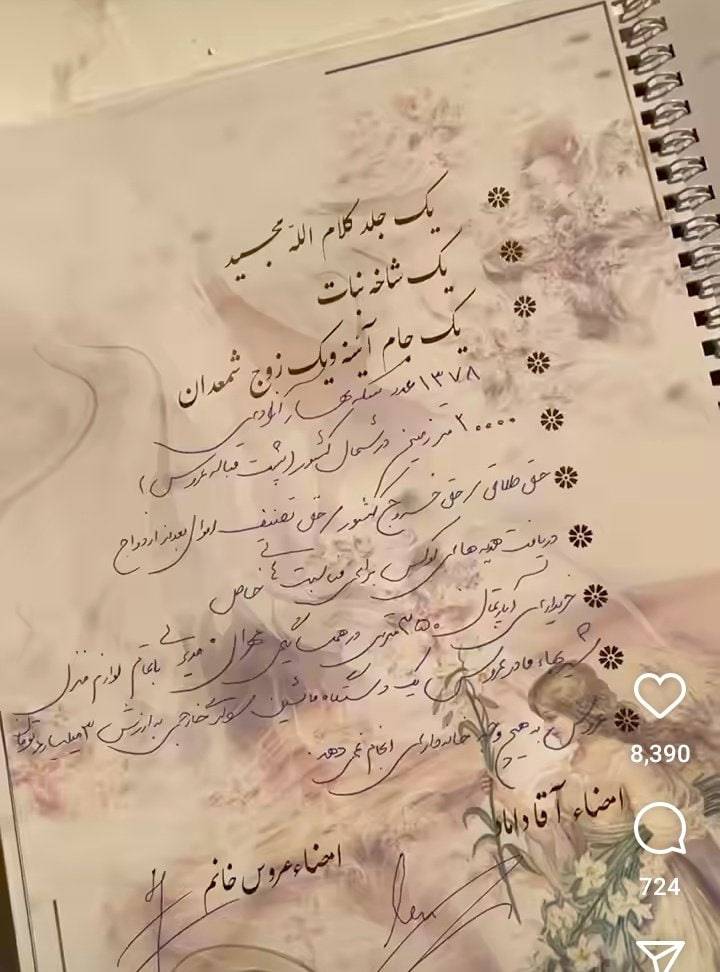 یک جلد کلام الله مجید
یک شاخه نبات
یک جام آئینه ویک زوج شمعدان
۱۳۷۸ عدد سکه بهار آزادی
۲۰۰۰۰ متر زمین در شمال کشور (پشت قباله عروس)
حق طلاق، حق خروج کشور، حق تصنیف اموال بعد از ازدواج
دریافت هدیه های لوکس برای مناسبت های خاص
خریداری آپارتمان ۳۵۰ متری در همسایگی با تمام لوازم منزل
شیربهاء مادر عروس یک دستگاه ماشین سواری خارجی به ارزش ۳ میلیارد تومان
عروس به هیچ وجه خانه داری انجام نمی دهد.
امضاء آقا داماد
امضاء عروس خانم
8,390
724